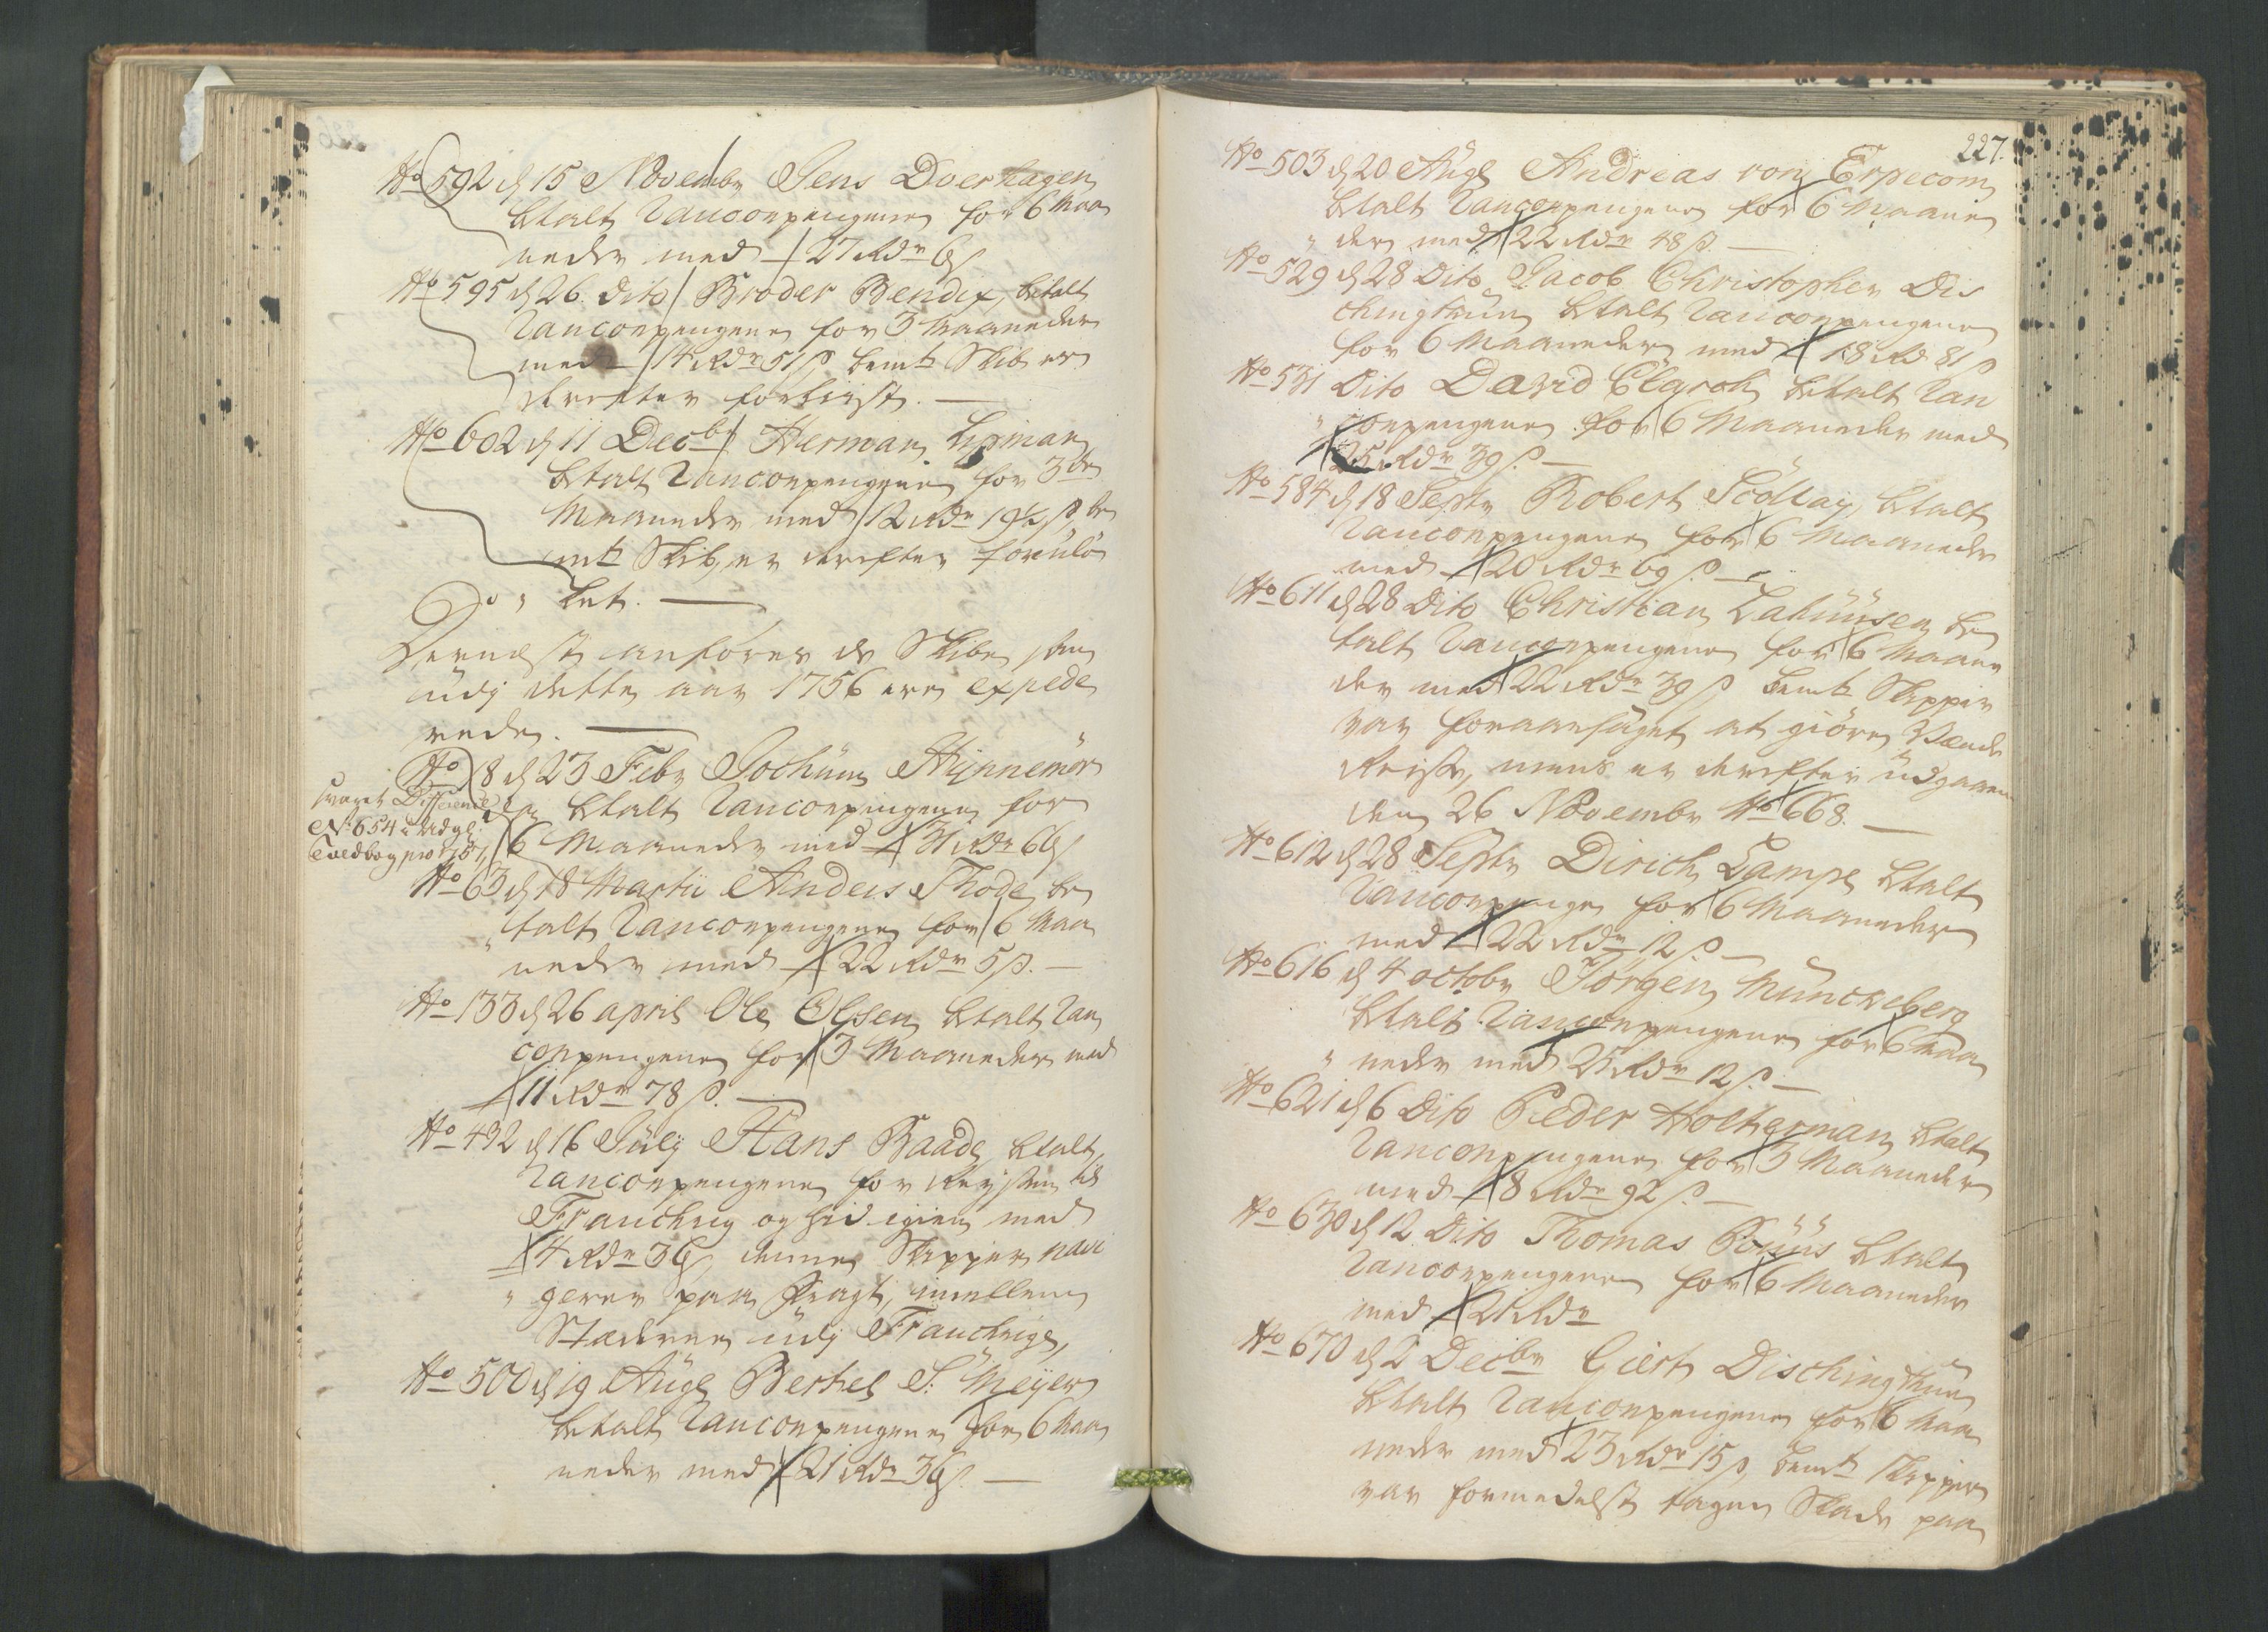 No 592 d 15 Novembr Jens Doerhagen
btalt Ranconpengene for 6 Maa
neder med 27 Rdr 6 ß
No 595 d 26 dito Broder Bendix, betalt
Ranconpengene for 3 Maaneder
med 14 Rdr 51 ß bemte Skib er
derefter forliist.
No 602 d 11 Decbr Herman Lipman
btalt Ranconpengene for 3de
Maaneder med 12 Rdr 19½ ß, be
mte Skib, er derefter forulÿc
ket.
Dernæst anföres de Skibe som
udj dette aar 1756 ere expede
rede.
No 8 d 23 Febr Jochum Hynnemör
btalt Ranconpengene for
6 Maaneder med 31 Rdr 66 ß
svaret Difference
No 654 i
Toldbog pro 1757
No 63 d 18 Martii Anders Thode be
talt Ranconpengene for 6 Maa
neder med 22 Rdr 5 ß.
No 133 d 26 april Ole Olsen btalt Ran
conpengene for 3 Maaneder med
11 Rdr 78 ß.
No 432 d 16 Julÿ Hans Baade btalt
Ranconpengene for Reÿsen til
Franchrig og hid igien med
4 Rdr 36 ß, denne Skipper navi
gerer paa Fragt, imellem
Stæderne udj Franchrige,
No 500 d 19 Aug Bertel S: Meÿer
btalt Ranconpengene for 6 Maa
neder med 21 Rdr 36 ß.
227.
No 503 d 20 Aug Andreas von Erpecom
btalt Ranconpengene for 6 Maane
der med 22 Rdr 48 ß.
No 529 d 28 Dito Jacob Christopher Dis
chingthun btalt Ranconpengene
for 6 Maaneder med 18 Rd 81 ß
No 531 Dito David Elgroh betalt Ran
conpengene for 6 Maaneder med
25 Rdr 39 ß.
No 584 d 18 Septr Robert Scollaÿ btalt
Ranconpengene for 6 Maaneder
med 20 Rdr 69 ß.
No 611 d 28 Dito Christian Lahuusen be
talt Ranconpengene for 6 Maane
der med 22 Rdr 39 ß bemte Skipper
var foraarsaget at giöre Vænde
Reise, mens er derefter udgaaen
den 26 Novembr No 668.
No 612 d 28 Septr Dirich Lampe btalt
Ranconpenge for 6 Maaneder
med 22 Rdr 12 ß
No 616 d 4 octobr Jörgen Münckeberg
btalt Ranconpengene for 6 Maa
neder med 25 Rdr 12 ß.
No 621 d 6 Dito Peder Holterman btalt
Ranconpengene for 3 Maaneder
med 8 Rdr 92 ß.
No 630 d 12 Dito Thomas Puuis btalt
Ranconpengene for 6 Maaneder
med 21 Rdr
No 670 d 2 Decbr Giert Dischingthun
btalt Ranconpengene for 6 Maa
neder med 23 Rdr 15 ß, bemte Skipper
var formedelst tagen Skade paa